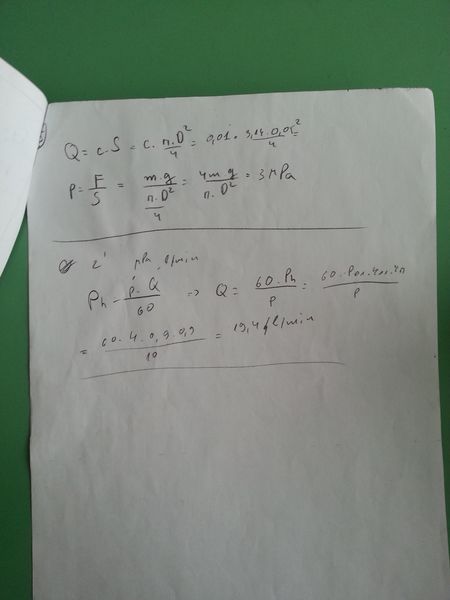 Q = c.S = c. π.D²/4 = 0,01 · 3,14.0,0²/4 =
P = F/S = m.g/(π.D²/4) = 4m g/π.D² = 3 MPa
MPa l/min
Ph = p.Q/60 => Q = 60.Ph/p =
= 60.4.0,9.0,9/10 = 19,4 l/min